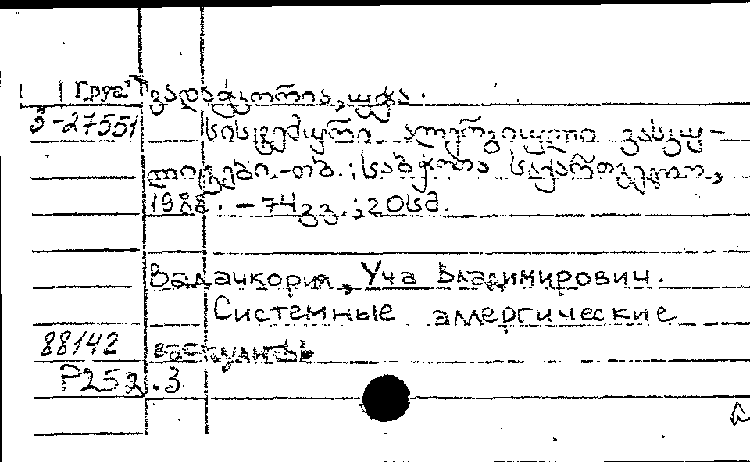 Груз ვადაჭკორია, უჩა.
3-27551 სისტემური ალერგიული ვასკუ-
ლიტები.-თბ.; საბჭოთა საქართველო,
1988. - 74 გვ.; 20 სმ.
Вадачкория, Уча Владимирович.
Системные аллергические
88142 васкулиты
Р252.3